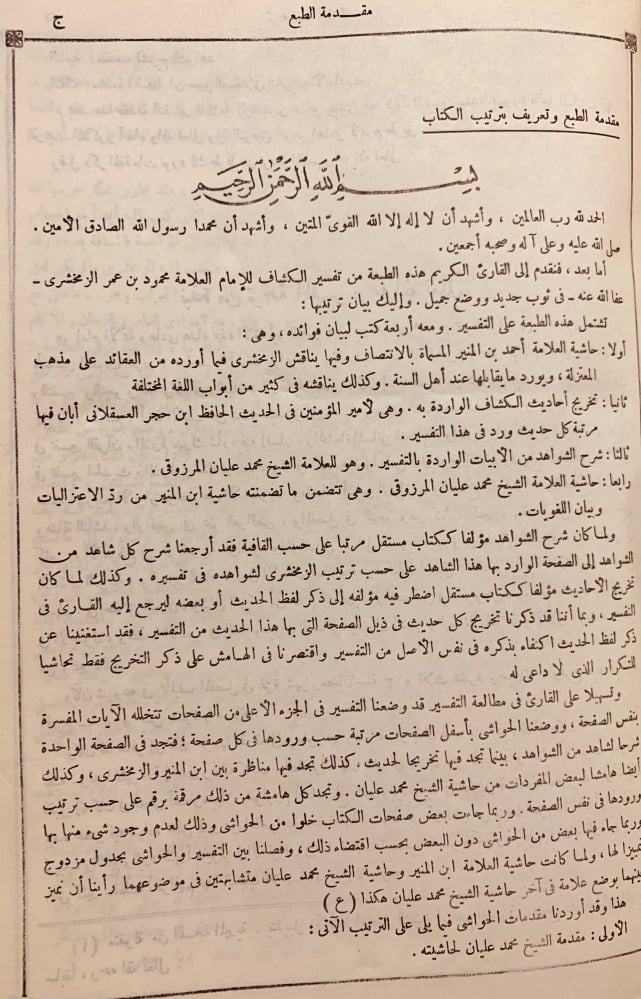 مقدمة الطبع
ج
مقدمة الطبع وتعريف بترتيب الكتاب
بسم الله الرحمن الرحيم
الحمد لله رب العالمين ، وأشهد أن لا إله إلا الله القوىّ المتين ، وأشهد أن محمدا رسول الله الصادق الأمين .
صلى الله عليه وعلى آله وصحبه أجمعين .
أما بعد ، فنقدم إلى القارئ الكريم هذه الطبعة من تفسير الكشاف للإمام العلامة محمود بن عمر الزمخشرى ــ
عفا الله عنه ــ فى ثوب جديد ووضع جميل . وإليك بيان ترتيبها :
تشتمل هذه الطبعة على التفسير . ومعه أربعة كتب لبيان فوائده ، وهى :
أولا : حاشية العلامة أحمد بن المنير المسماة بالانتصاف وفيها يناقش الزمخشرى فيما أورده من العقائد على مذهب
المعتزلة ، ويورد ما يقابلها عند أهل السنة . وكذلك يناقشه فى كثير من أبواب اللغة المختلفة
ثانيا : تخريج أحاديث الكشاف الواردة به . وهى لأمير المؤمنين فى الحديث الحافظ ابن حجر العسقلانى أبان فيها
مرتبة كل حديث ورد فى هذا التفسير .
ثالثا : شرح الشواهد من الأبيات الواردة بالتفسير . وهو للعلامة الشيخ محمد عليان المرزوقى .
رابعا : حاشية العلامة الشيخ محمد عليان المرزوقى . وهى تتضمن ما تضمنته حاشية ابن المنير من ردّ الاعتزاليات
وبيان اللغويات .
ولما كان شرح الشواهد مؤلفا ككتاب مستقل مرتبا على حسب القافية فقد أرجعنا شرح كل شاهد من
الشواهد إلى الصفحة الوارد بها هذا الشاهد على حسب ترتيب الزمخشرى لشواهده فى تفسيره . وكذلك لما كان
تخريج الأحاديث مؤلفا ككتاب مستقل اضطر فيه مؤلفه إلى ذكر لفظ الحديث أو بعضه ليرجع إليه القارئ فى
التفسير ، وبما أننا قد ذكرنا تخريج كل حديث فى ذيل الصفحة التى بها هذا الحديث من التفسير ، فقد استغنينا عن
ذكر لفظ الحديث اكتفاء بذكره فى نفس الأصل من التفسير واقتصرنا فى الهامش على ذكر التخريج فقط تحاشيا
للتكرار الذى لا داعى له
وتسهيلا على القارئ فى مطالعة التفسير قد وضعنا التفسير فى الجزء الأعلى من الصفحات تتخلله الآيات المفسرة
بنفس الصفحة ، ووضعنا الحواشى بأسفل الصفحات مرتبة حسب ورودها فى كل صفحة ؛ فتجد فى الصفحة الواحدة
شرحا لشاهد من الشواهد ، بينما تجد فيها تخريجا لحديث ، كذلك تجد فيها مناظرة بين ابن المنير والزمخشرى ، وكذلك
أيضا هامشا لبعض المفردات من حاشية الشيخ محمد عليان . وتجد كل هامشة من ذلك مرقمة برقم على حسب ترتيب
ورودها فى نفس الصفحة . وربما جاءت بعض صفحات الكتاب خلوا من الحواشى وذلك لعدم وجود شىء منها بها
وربما جاء فيها بعض من الحواشى دون البعض بحسب اقتضاء ذلك ، وفصلنا بين التفسير والحواشى بجدول مزدوج
تمييزا لها ، ولما كانت حاشية العلامة ابن المنير وحاشية الشيخ محمد عليان متشابهتين فى موضوعهما رأينا أن نميز
بينهما بوضع علامة فى آخر حاشية الشيخ محمد عليان هكذا ( ع )
هذا وقد أوردنا مقدمات الحواشى فيما يلى على الترتيب الآتى :
الأولى : مقدمة الشيخ محمد عليان لحاشيته .